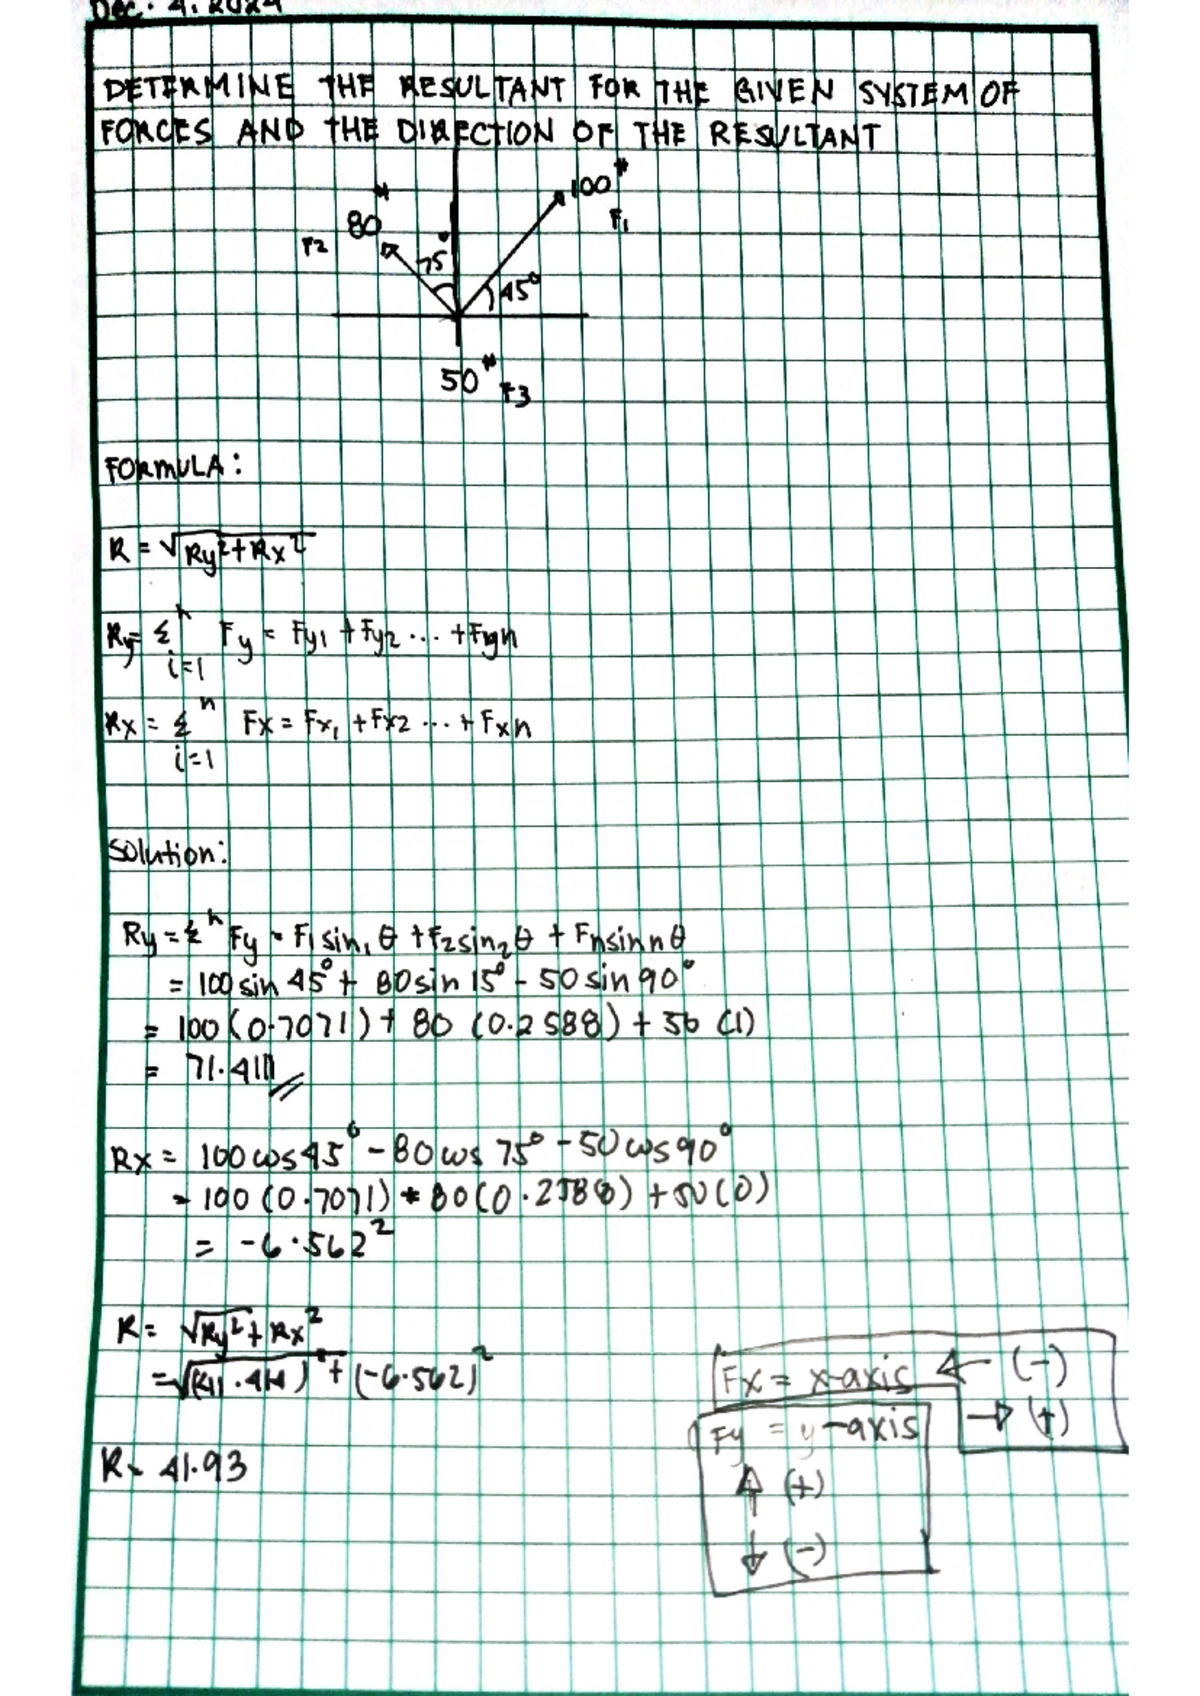 Dec. 4. 2024
DETERMINE THE RESULTANT FOR THE GIVEN SYSTEM OF
FORCES AND THE DIRECTION OF THE RESULTANT
100#
F1
80#
F2
75°
45°
50#
F3
FORMULA:
R = √Ry²+Rx²
Ry= Σ n i=1 Fy = Fy1 + Fy2 ... + Fyn
Rx = Σ n i=1 Fx = Fx1 + Fx2 ... + Fxn
Solution:
Ry = Σ n Fy = F1 sin1 θ + F2 sin2 θ + Fn sin n θ
= 100 sin 45° + 80 sin 15° - 50 sin 90°
= 100 (0.7071) + 80 (0.2588) + 50 (1)
= 71.411
Rx = 100 cos 45° - 80 cos 75° - 50 cos 90°
= 100 (0.7071) + 80 (0.2588) + 50 (0)
= -6.562²
R = √Ry² + Rx²
+ (-6.562)²
R = 41.93
Fx = x-axis ← (-)
→ (+)
Fy = y-axis
↑ (+)
↓ (-)